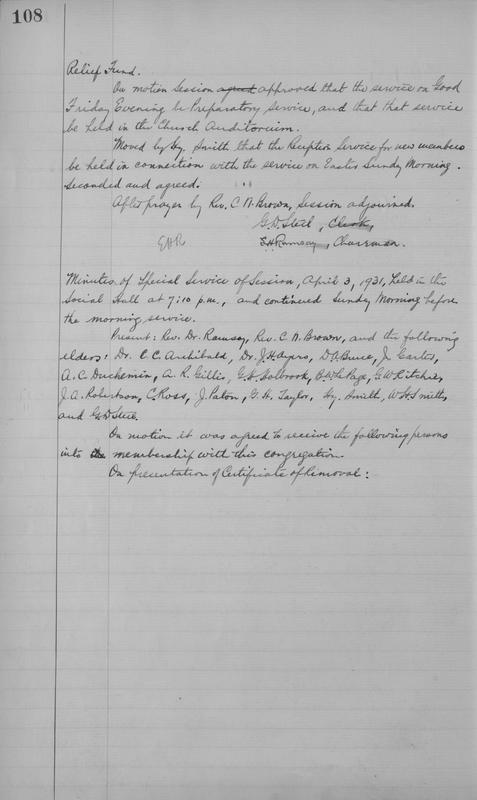 108
Relief Fund.
On motion Session agreed approved that the service on Good
Friday Evening be Preparatory Service, and that that service
be held in the Church Auditorium.
Moved by Hy. Smith that the Reception Service for new members
be held in connection with the service on Easter Sunday Morning.
Seconded and agreed.
After prayer by Rev. C. N. Brown, Session adjourned.
G. D. Steel, Clerk,
EHR
E. H. Ramsay, Chairman.
Minutes of Special Service of Session, April 3, 1931, held in the
Social Hall at 7:10 p.m., and continued Sunday Morning before
the morning service.
Present: Rev. Dr. Ramsay, Rev. C. N. Brown, and the following
elders: Dr. C. C. Archibald, Dr. J. H. Ayers, D. A. Bruce, J. Carter,
A. C. Duchemin, A. R. Gillis, Holbrook, LePage, G. W. Ritchie,
J. A. Robertson, C. Ross, J. Paton, G. H. Taylor, Hy. Smith, W. H. Smith,
and G. D. Steel.
On motion it was agreed to receive the following persons
into the membership with this congregation.
On presentation of Certificate of Removal: